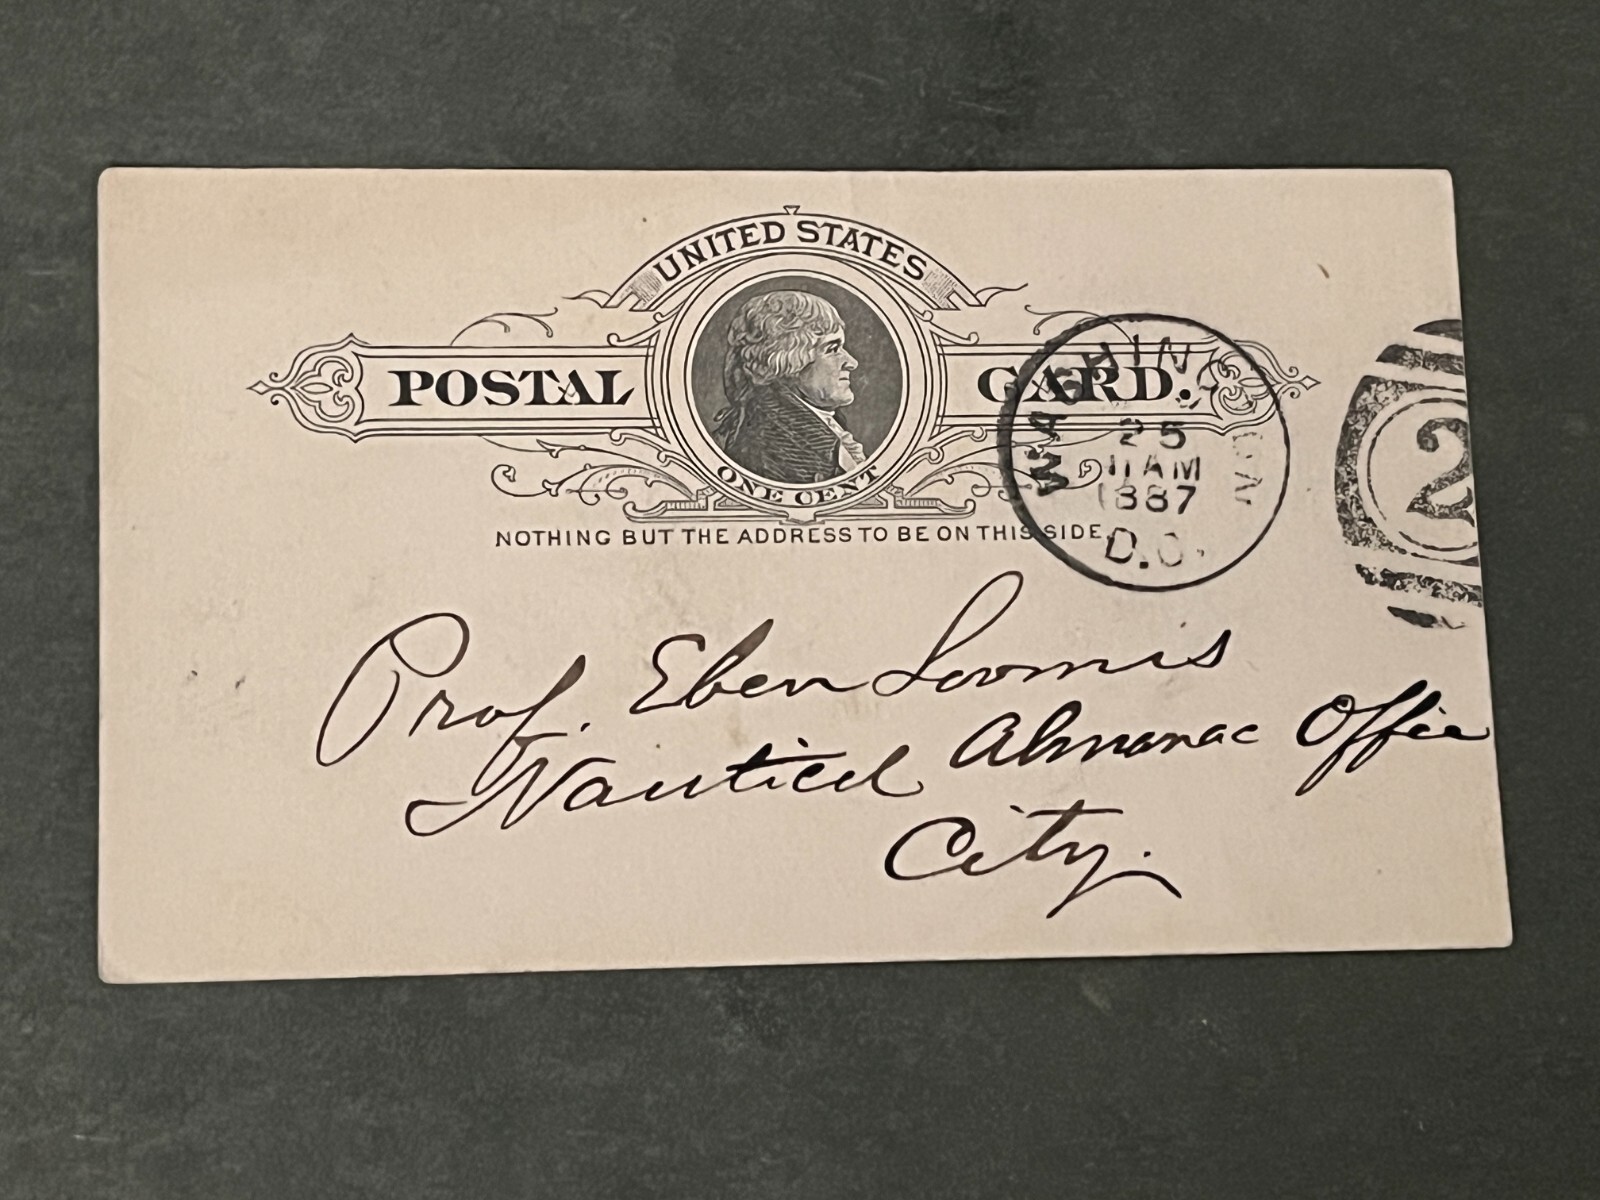 UNITED STATES
POSTAL CARD.
ONE CENT
NOTHING BUT THE ADDRESS TO BE ON THIS SIDE.
25
11 AM
1887
D.C.
2
Prof. Eben Loomis
Nautical Almanac Office
City.